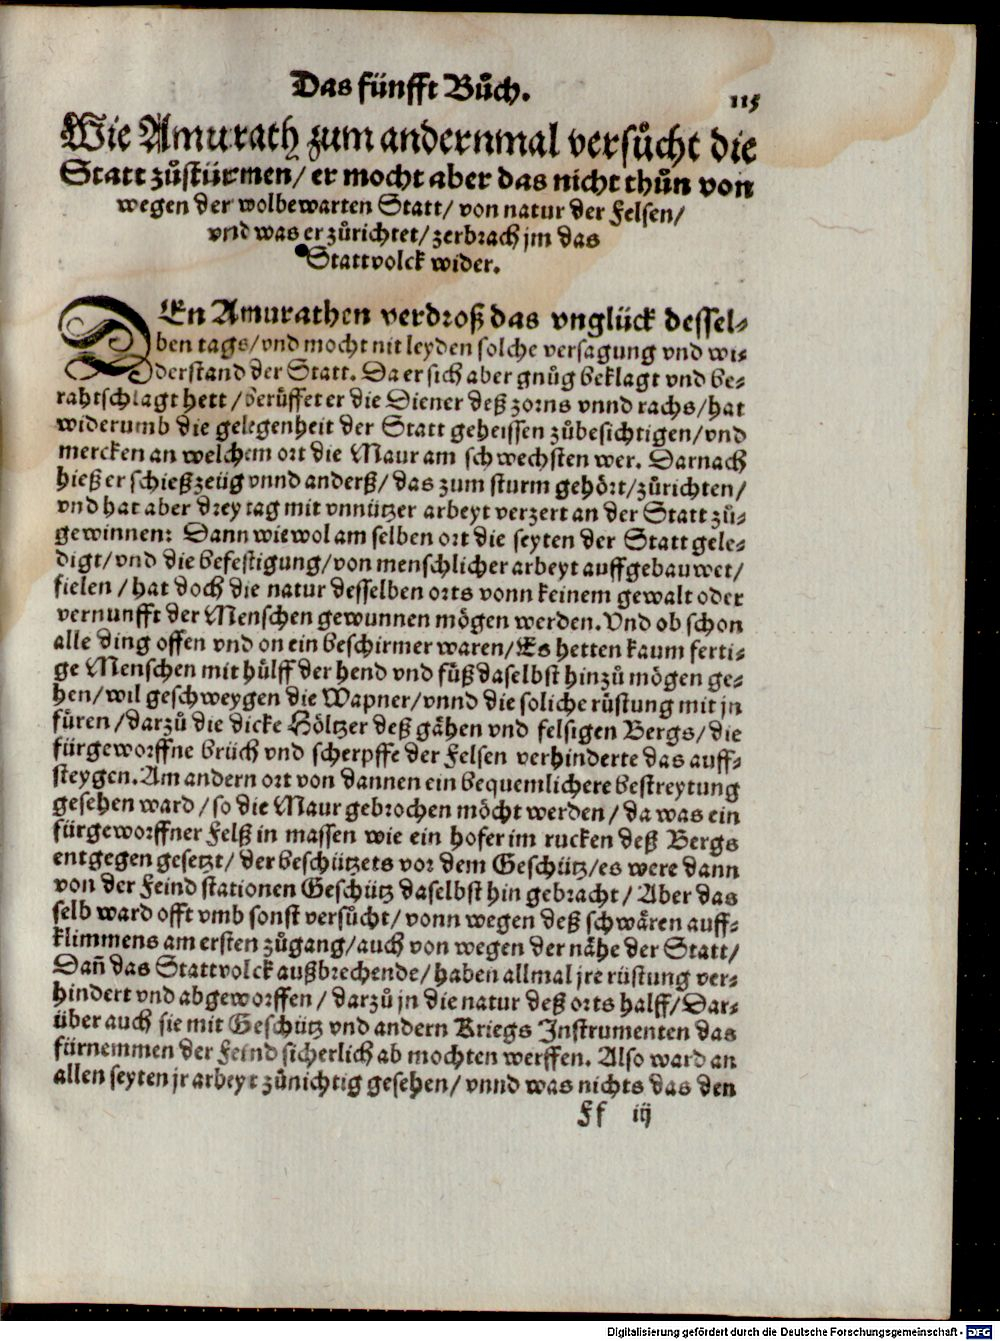 Das fünfft Bůch.
115
Wie Amurath zum andernmal versůcht die
Statt zůstürmen/ er mocht aber das nicht thůn von
wegen der wolbewarten Statt/ von natur der Felsen/
vnd was er zůrichtet/ zerbrach jm das
Stattvolck wider.
DEn Amurathen verdroß das vnglück dessel⸗
ben tags/ vnd mocht nit leyden solche versagung vnd wi⸗
derstand der Statt. Da er sich aber gnůg beklagt vnd be⸗
rahtschlagt hett/ berůffet er die Diener deß zorns vnnd rachs/ hat
widerumb die gelegenheit der Statt geheissen zůbesichtigen/ vnd
mercken an welchem ort die Maur am schwechsten wer. Darnach
hieß er schießzeüg vnnd anderß/ das zum sturm gehört/ zůrichten/
vnd hat aber drey tag mit vnnützer arbeyt verzert an der Statt zů⸗
gewinnen: Dann wiewol am selben ort die seyten der Statt gele⸗
digt/ vnd die befestigung/ von menschlicher arbeyt auffgebauwet/
fielen/ hat doch die natur desselben orts vonn keinem gewalt oder
vernunfft der Menschen gewunnen mögen werden. Vnd ob schon
alle ding offen vnd on ein beschirmer waren/ Es hetten kaum ferti⸗
ge Menschen mit hülff der hend vnd fůß daselbst hinzů mögen ge⸗
hen/ wil geschweygen die Wapner/ vnnd die soliche rüstung mit jn
füren/ darzů die dicke Höltzer deß gähen vnd felsigen Bergs/ die
fürgeworffne brüch vnd scherpffe der Felsen verhinderte das auff⸗
steygen. Am andern ort von dannen ein bequemlichere bestreytung
gesehen ward/ so die Maur gebrochen möcht werden/ da was ein
fürgeworffner Felß in massen wie ein hofer im rucken deß Bergs
entgegen gesetzt/ der beschützets vor dem Geschütz/ es were dann
von der Feind stationen Geschütz daselbst hin gebracht/ Aber das
selb ward offt vmb sonst versůcht/ vonn wegen deß schwären auff⸗
klimmens am ersten zůgang/ auch von wegen der nähe der Statt/
Dañ das Stattvolck außbrechende/ haben allmal jre rüstung ver⸗
hindert vnd abgeworffen/ darzů jn die natur deß orts halff/ Dar⸗
über auch sie mit Geschütz vnd andern Kriegs Instrumenten das
fürnemmen der Feind sicherlich ab mochten werffen. Also ward an
allen seyten jr arbeyt zůnichtig gesehen/ vnnd was nichts das den
Ff iij
Digitalisierung gefördert durch die Deutsche Forschungsgemeinschaft - DFG